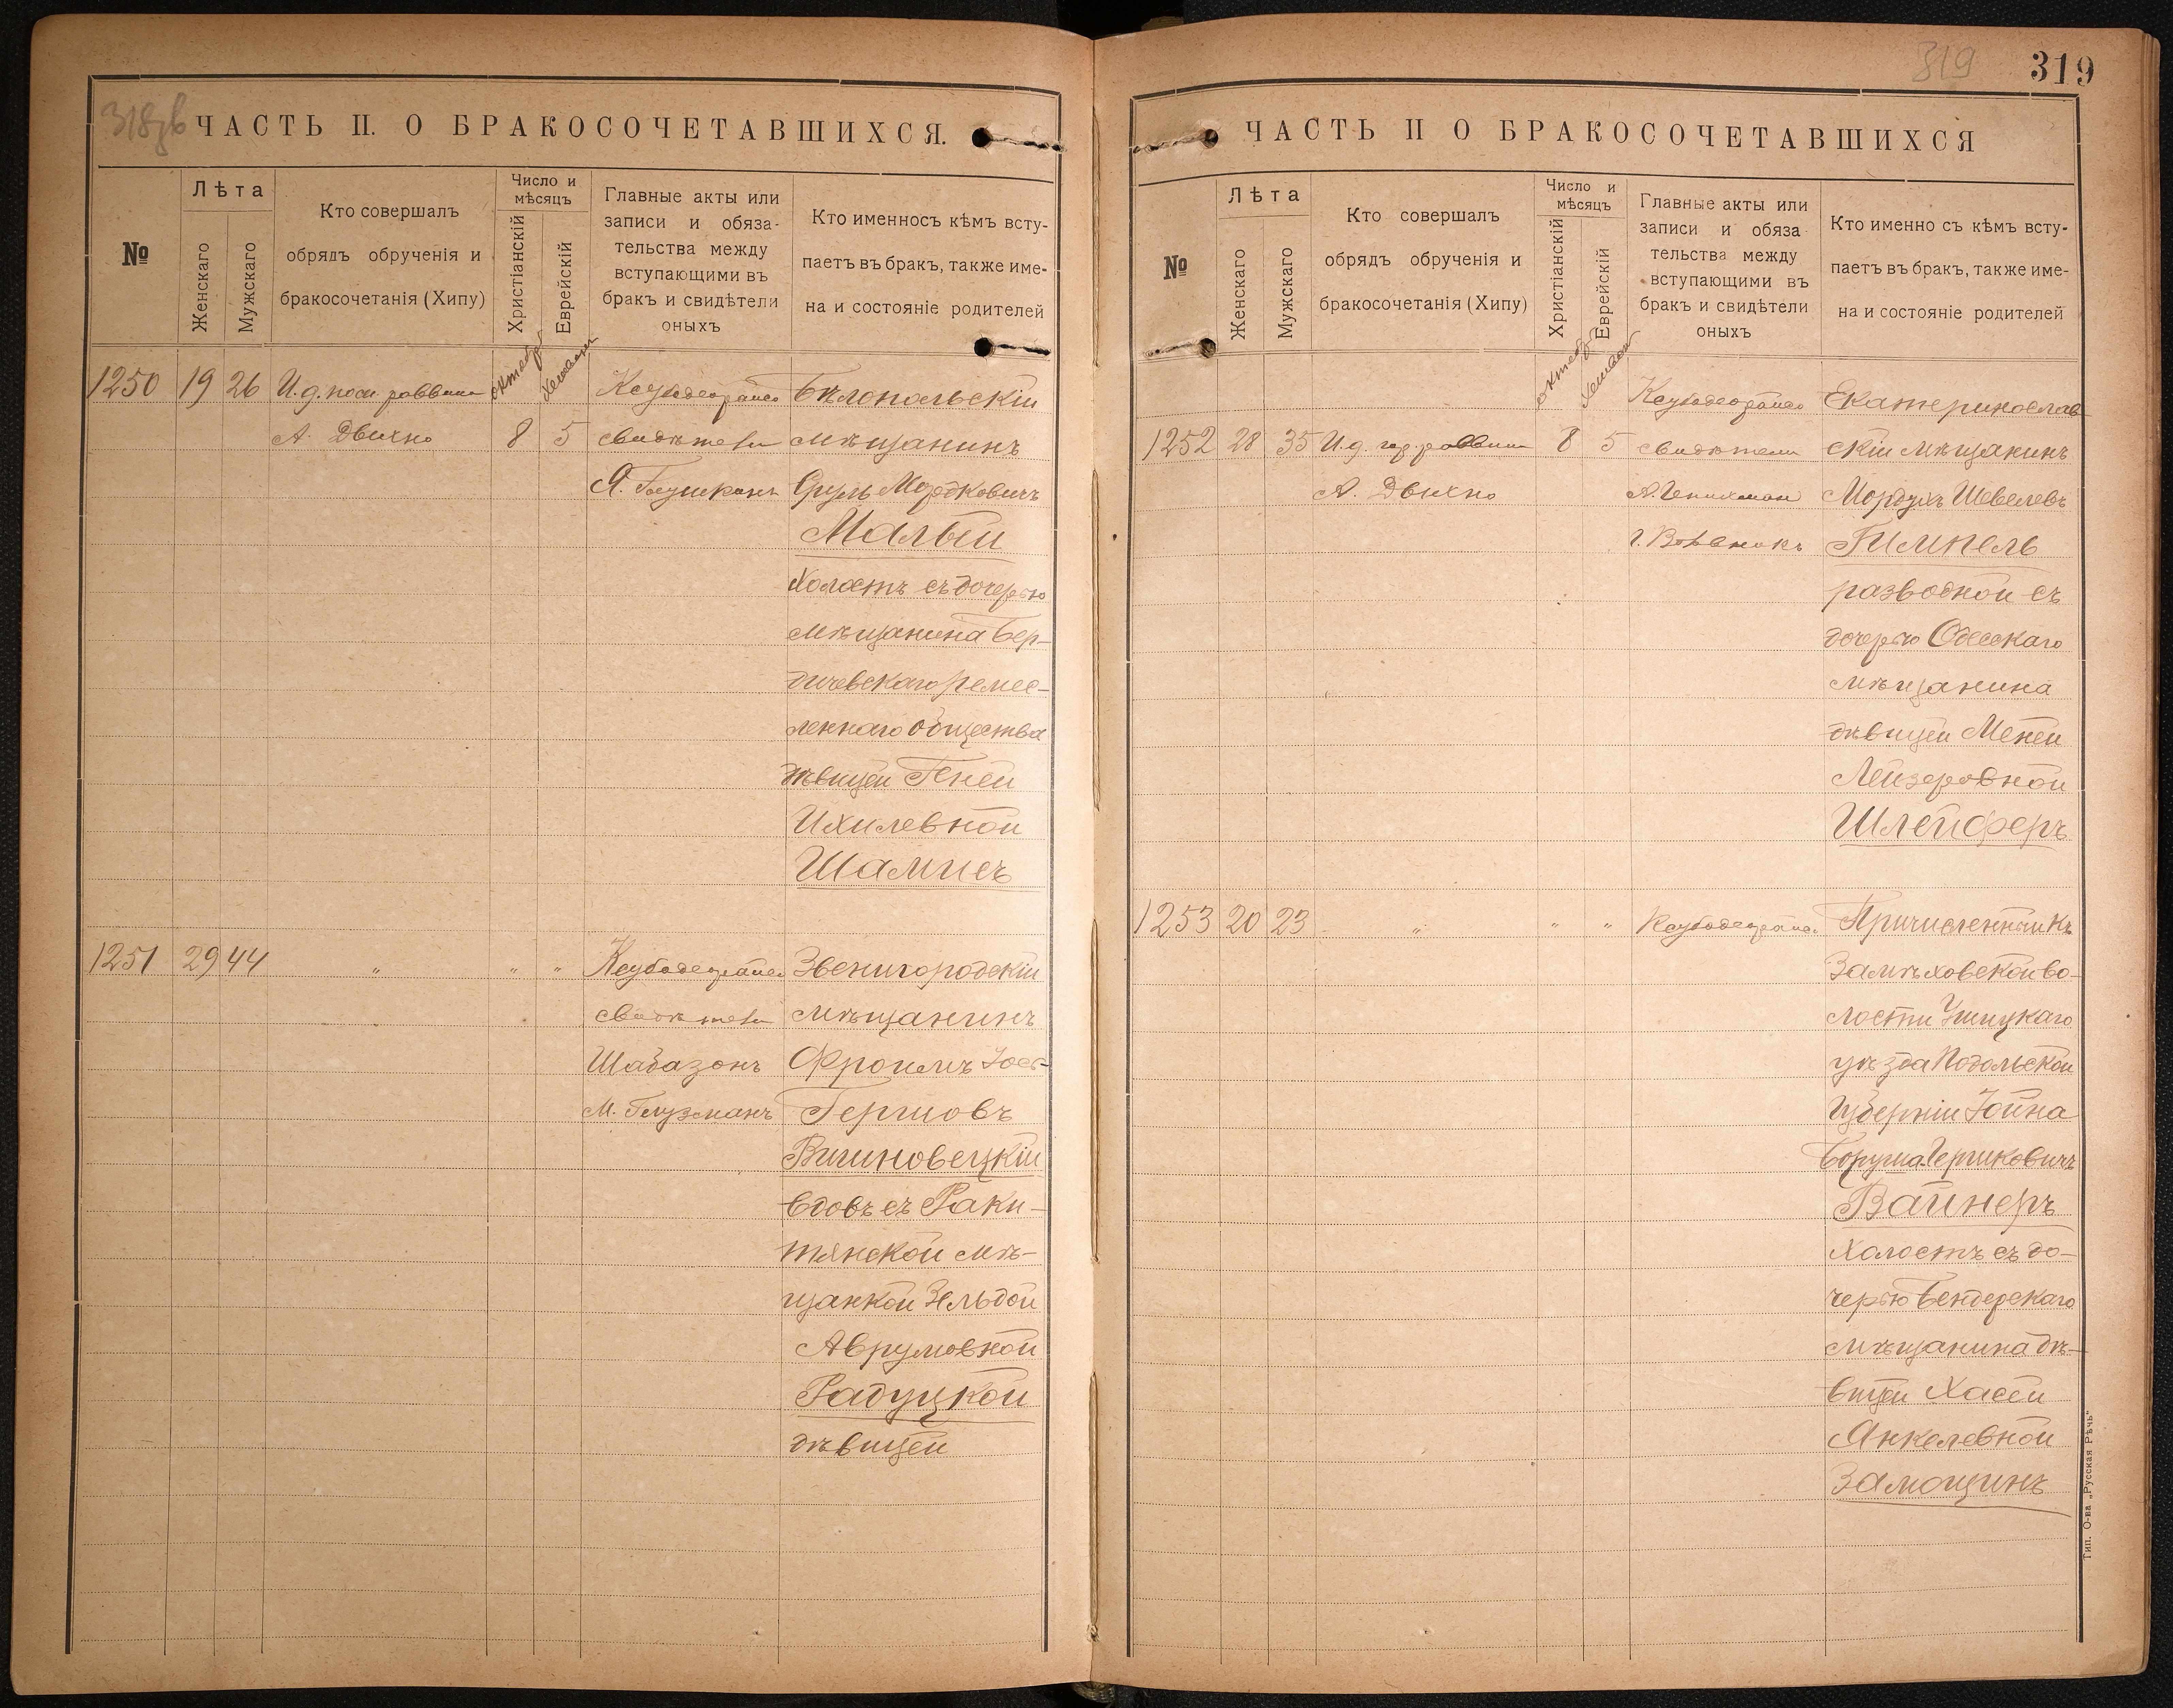 318зв
ЧАСТЬ II. О БРАКОСОЧЕТАВШИХСЯ.
№
Лѣта
Женскаго
Мужскаго
Кто совершалъ
обрядъ обрученія и
бракосочетанія (Хипу)
Число и
мѣсяцъ
Христіанскій
Еврейскій
Главные акты или
записи и обяза-
тельства между
вступающими въ
бракъ и свидѣтели
оныхъ
Кто именносъ кѣмъ всту-
паетъ въ бракъ, также име-
на и состояніе родителей
октябр
1250 19 26 И.д. раввина
А. Двихно 8 5
свидѣтели
Бѣлопольскій
мѣщанинъ
Сруль Мордковичъ
Малый
холостъ съ дочерью
мѣщанина Бер-
дичевскаго ремес-
леннаго общества
дѣвицей Геней
Ихилевной
Шамисъ
1251 29 44 " " "
свидѣтели
Шабазонъ
М. Глузманъ
Звенигородскій
мѣщанинъ
Фроимъ Іось-
Гершовъ
Вишновецкій
вдовъ съ Раки-
тянской мѣ-
щанкой Эльдой
Аврумовной
Радуцкой
дѣвицей
319
319
ЧАСТЬ II О БРАКОСОЧЕТАВШИХСЯ
№
Лѣта
Женскаго
Мужскаго
Кто совершалъ
обрядъ обрученія и
бракосочетанія (Хипу)
Число и
мѣсяцъ
Христіанскій
Еврейскій
Главные акты или
записи и обяза
тельства между
вступающими въ
бракъ и свидѣтели
оныхъ
Кто именно съ кѣмъ всту-
паетъ въ бракъ, также име-
на и состояніе родителей
октябр
1252 28 35 И.д. гор. раввина
А. Двихно 8 5
свидѣтели
Екатеринослав-
скій мѣщанинъ
Мордухъ Шевелевъ
Гимпель
разводной съ
дочерью Одесскаго
мѣщанина
дѣвицей Меней
Лейзеровной
Шлейферъ
1253 20 23 " " "
Причисленный къ
Замѣховской во-
лости Ушицкаго
уѣзда Подольской
губерніи Іойна
Борухъ Гершковичъ
Вайнеръ
холостъ съ до-
черью Бендерскаго
мѣщанина дѣ-
вицей Хасей
Янкелевной
Замощинъ
Тип. О-ва „Русская Рѣчь"